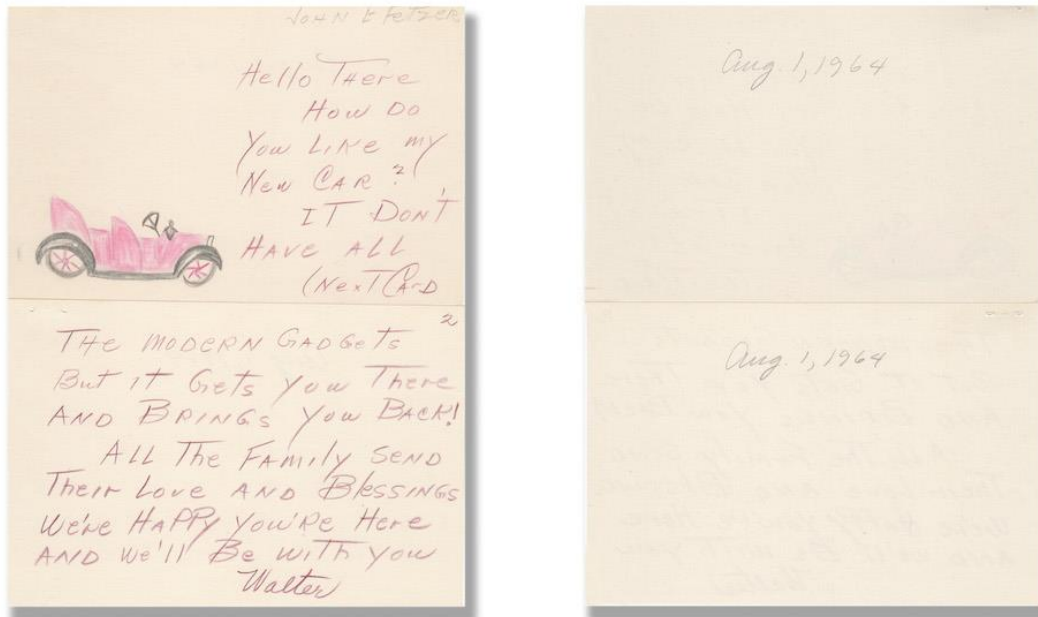 JOHN E FETZER
Hello THERE
HOW DO
YOU LIKE my
NEW CAR?
IT DON'T
HAVE ALL
(NexT CARD
2
THE MODERN GADGETS
BUT IT GETS YOU THERE
AND BRINGS YOU BACK!
ALL THE FAMILY SEND
THEIR LOVE AND BLESSINGS
WE'RE HAPPY YOU'RE HERE
AND WE'LL BE WITH YOU
Walter
Aug. 1, 1964
Aug. 1, 1964